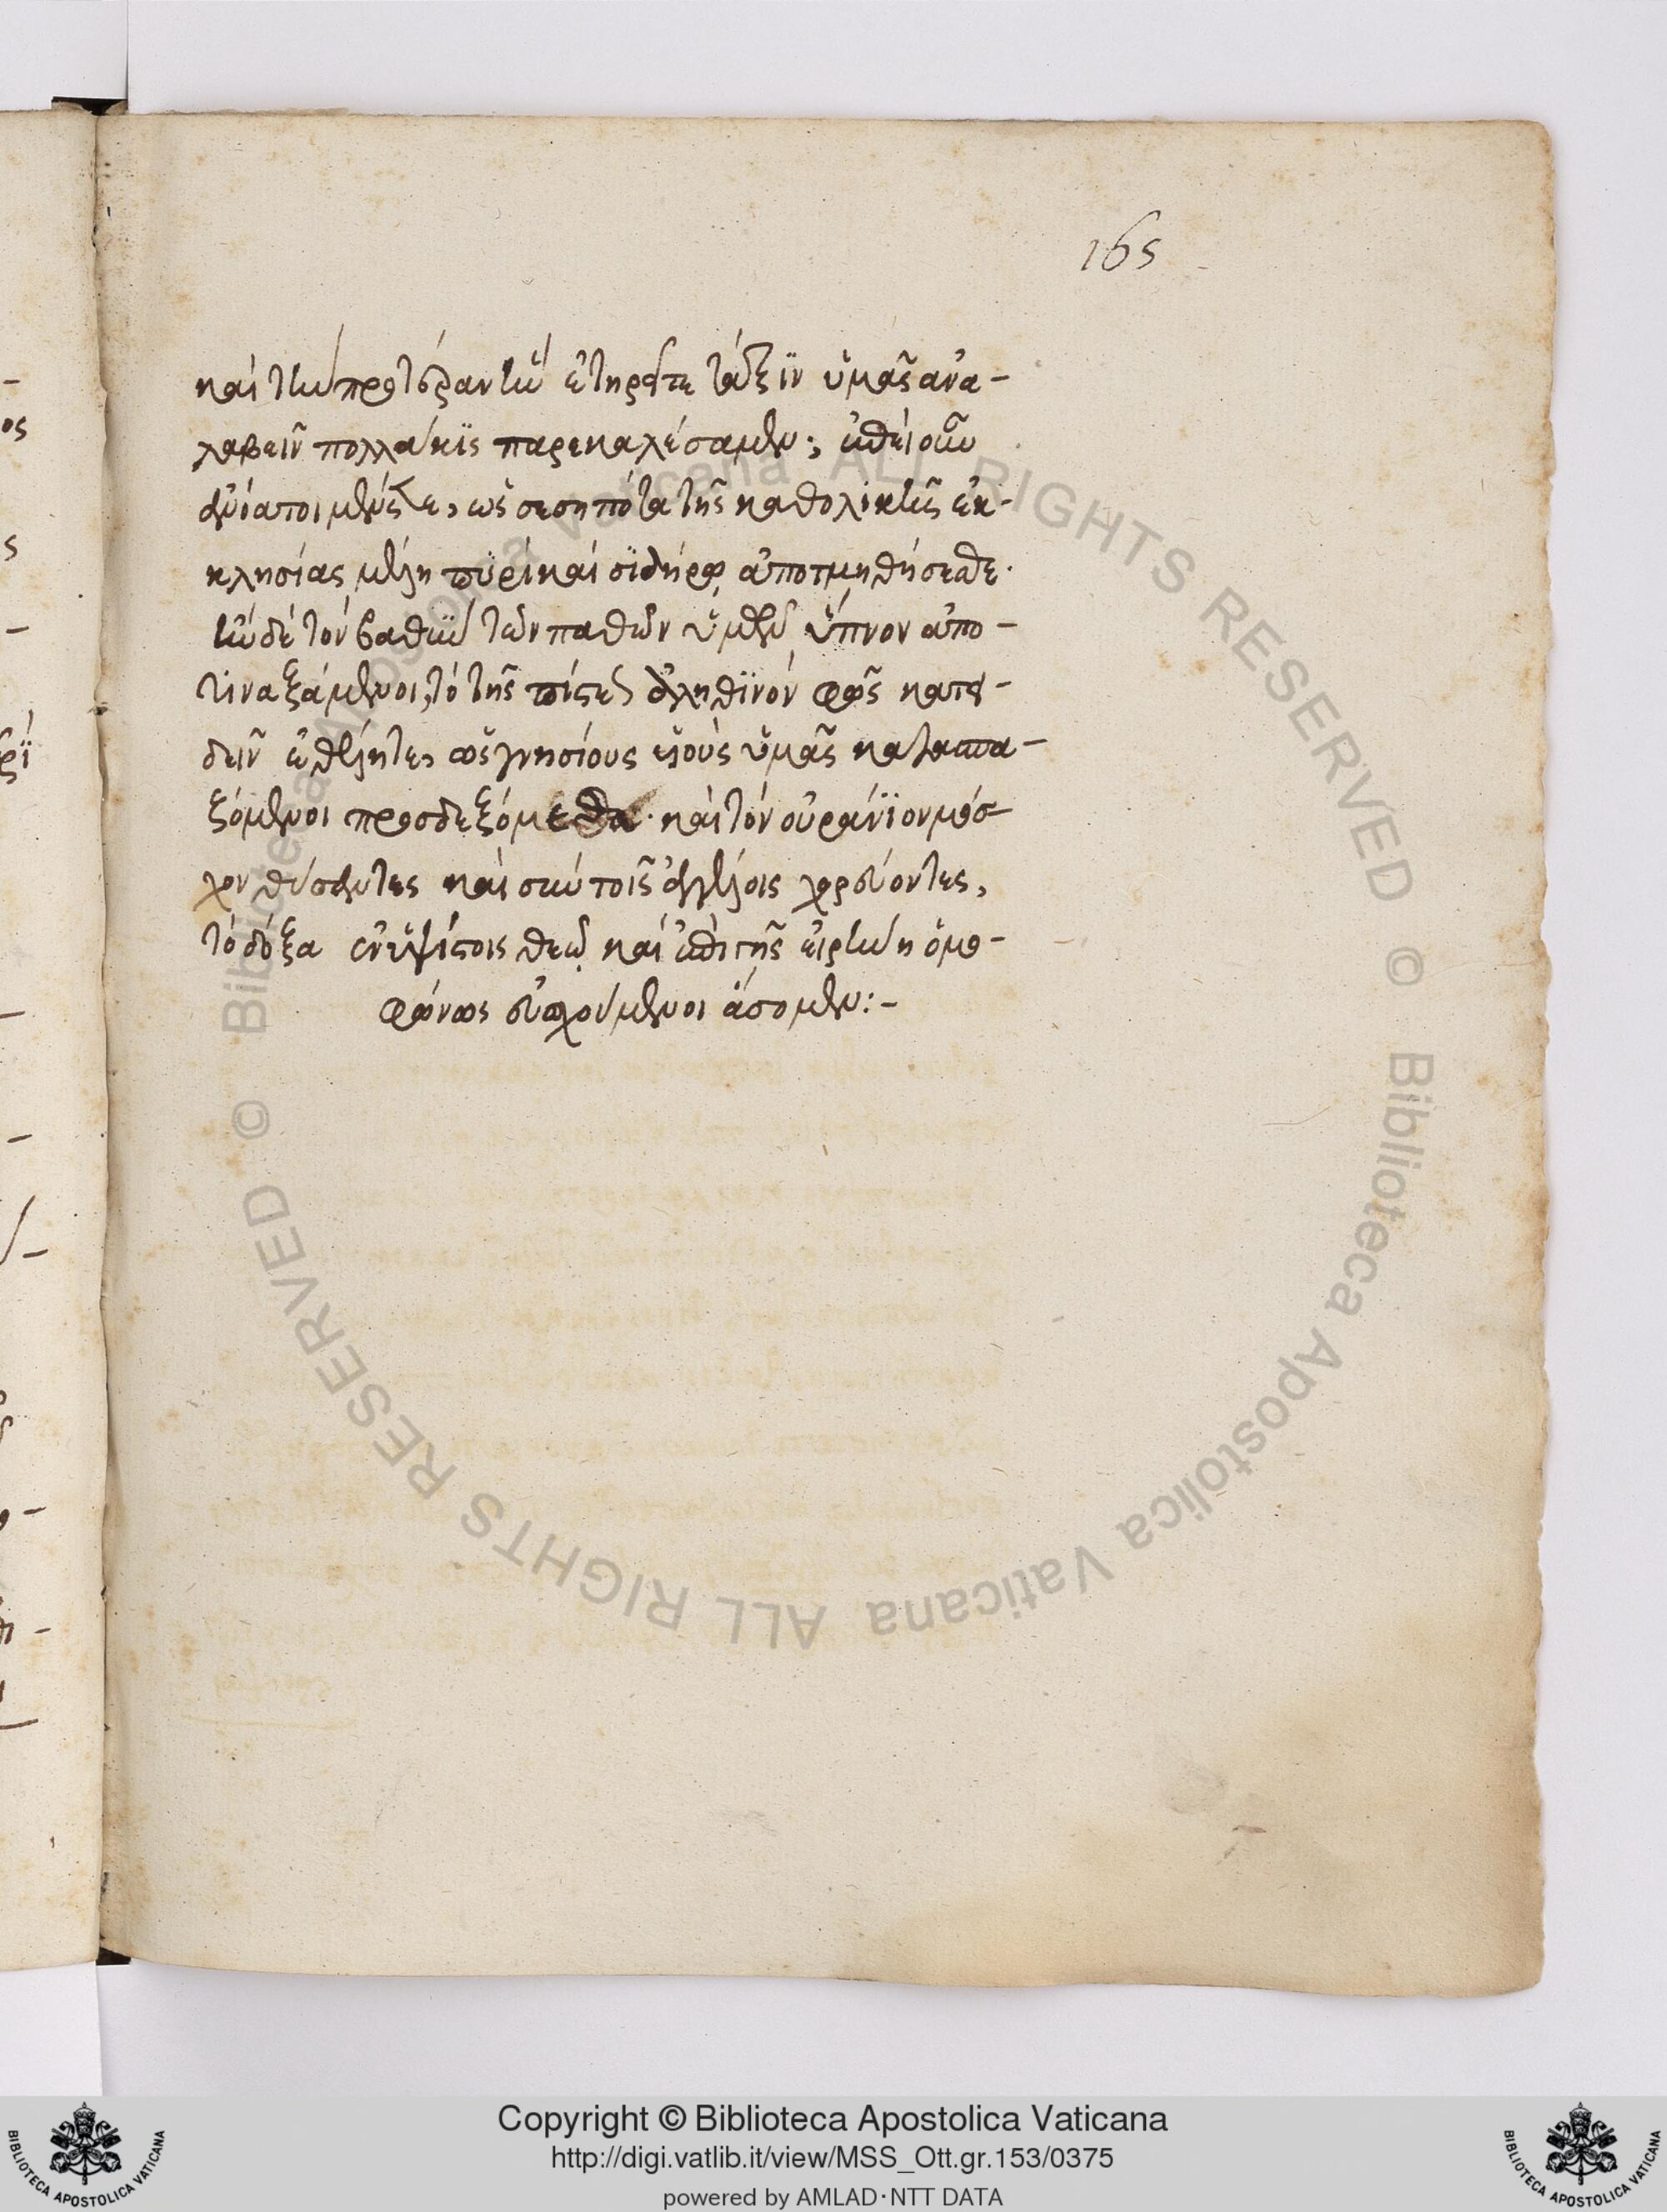 165
καὶ τὴν προτέραν ἣν ἐτηρεῖτε τάξϊν ὑμᾶς ἀνα-
λαβεῖν πολλάκϊς παρεκαλέσαμεν; ἐπεὶ οὖν
ἀνίατοι μένετε, ὡς σεσηπότα τῆς καθολικῆς ἐκ-
κλησίας μέλη πϋρὶ καὶ σϊδήρῳ ἀποτμηθήσεσθε.
ἢν δὲ τὸν βαθὺν τῶν παθῶν ὑμῶν ὕπνον ἀπο-
τϊναξάμενοι, τὸ τῆς πίστεως ἀληθϊνὸν φῶς κατι-
δεῖν ἐθέλητε, ὡς γνησίους υἱοὺς ὑμᾶς κατασπα-
ξόμενοι προσδεξόμεθα· καὶ τὸν οὐράνϊον μόσ-
χον θύσαντες καὶ σὺν τοῖς ἀγγέλοις χορεύοντες,
τὸ δόξα ἐν ὑψίστοις θεῷ καὶ ἐπὶ γῆς εἰρήνη ὁμο-
φώνως εὐωχούμενοι ᾄσομεν:-
Biblioteca Apostolica Vaticana ALL RIGHTS RESERVED ©
Biblioteca Apostolica Vaticana ALL RIGHTS RESERVED ©
Copyright © Biblioteca Apostolica Vaticana
http://digi.vatlib.it/view/MSS_Ott.gr.153/0375
powered by AMLAD·NTT DATA
BIBLIOTECA APOSTOLICA VATICANA
BIBLIOTECA APOSTOLICA VATICANA